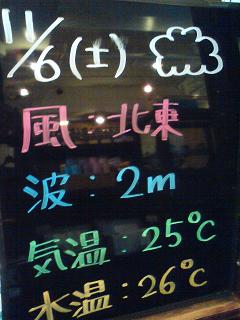 11/6(土)
風:北東
波:2m
気温:25℃
水温:26℃